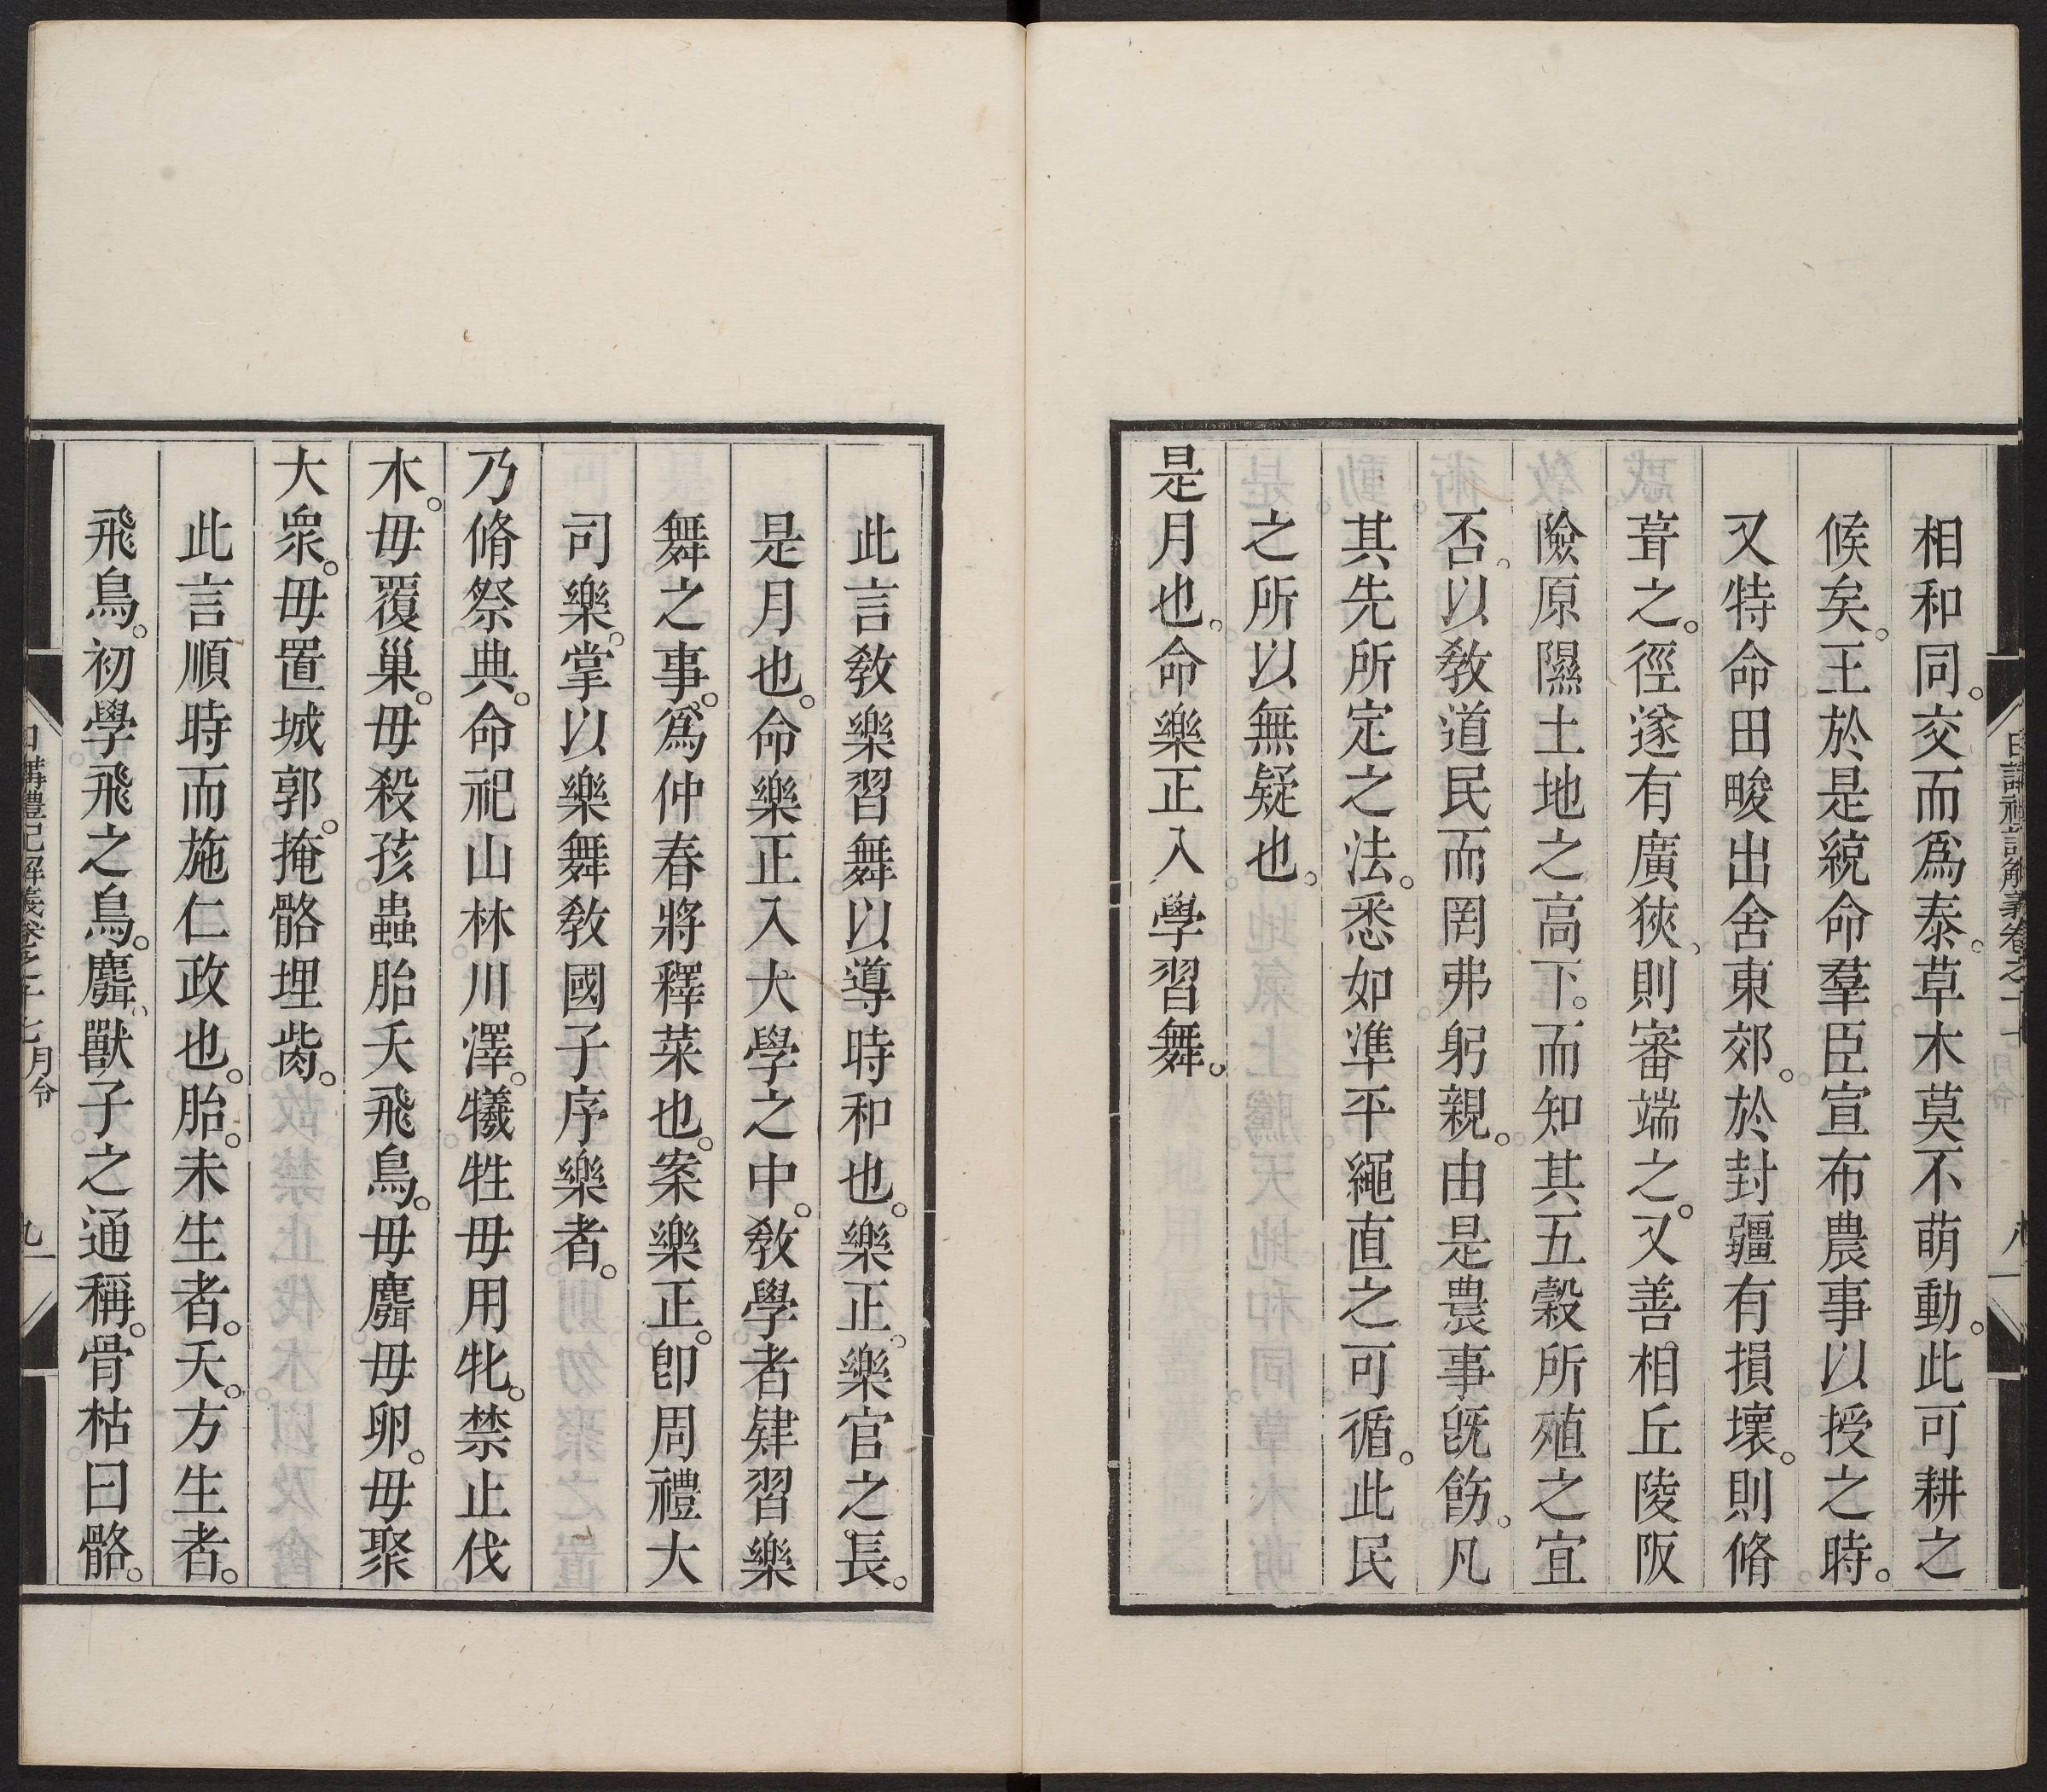 相和同。交而爲泰。草木莫不萌動。此可耕之
候矣。王於是統命羣臣宣布農事以授之時。
又特命田畯出舍東郊。於封疆有損壞。則脩
葺之。徑遂有廣狹、則審端之。又善相丘陵阪
險原隰土地之高下。而知其五穀所殖之宜
否。以敎道民而罔弗躬親。由是農事旣飭。凡
其先所定之法。悉如準平繩直之可循。此民
之所以無疑也。
是月也。命樂正入學習舞。
日講禮記解義卷之十七 月令 八
此言敎樂習舞。以導時和也。樂正。樂官之長。
是月也。命樂正入大學之中。敎學者肄習樂
舞之事。爲仲春將釋菜也。案樂正。卽周禮大
司樂。掌以樂舞敎國子序樂者。
乃脩祭典。命祀山林川澤。犧牲毋用牝。禁止伐
木。毋覆巢。毋殺孩蟲胎夭飛鳥。毋麛毋卵。毋聚
大衆。毋置城郭。掩骼埋胔。
此言順時而施仁政也。胎。未生者。夭。方生者。
飛鳥。初學飛之鳥。麛。獸子之通稱。骨枯曰骼。
日講禮記解義卷之十七 月令 九